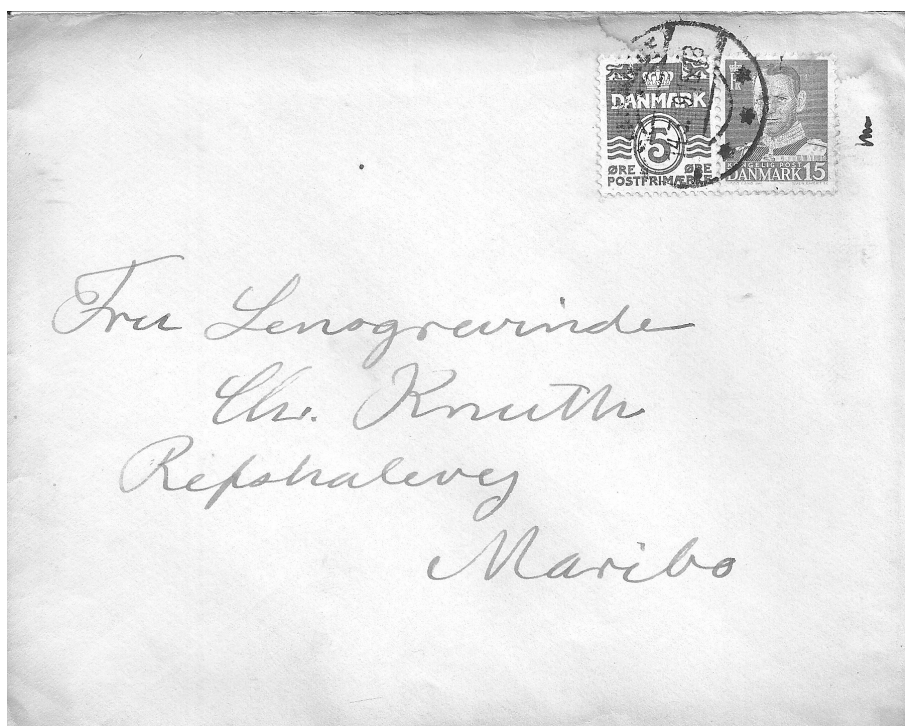 DANMARK
5
ØRE ØRE
POSTFRIMÆRKE
FR
KONGELIG POST
DANMARK 15
Fru Lensgrevinde
Chr. Knuth
Refshalevej
Maribo